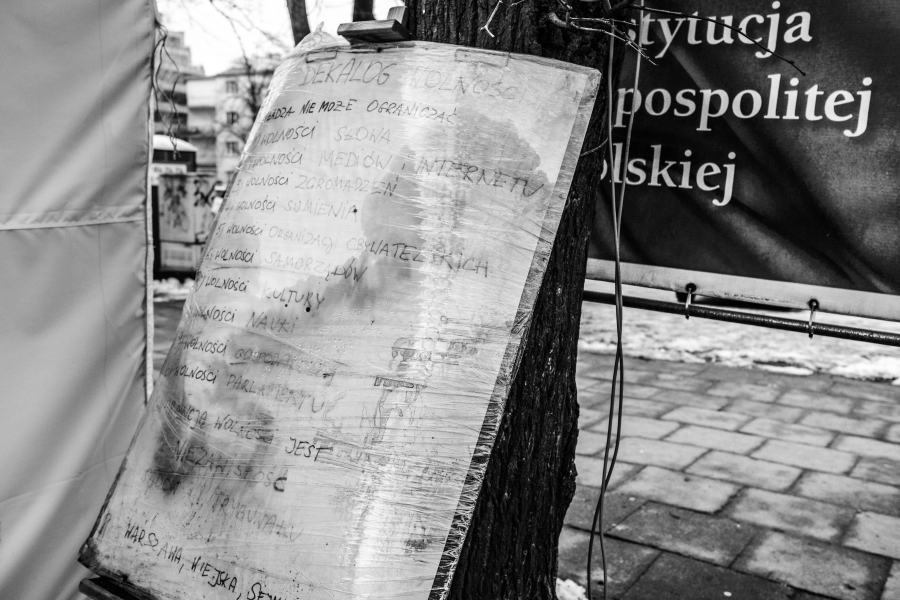 DEKALOG WOLNOŚCI
NIE MOŻE OGRANICZAĆ
WOLNOŚCI SŁOWA
WOLNOŚCI MEDIÓW i INTERNETU
WOLNOŚCI ZGROMADZEŃ
WOLNOŚCI SUMIENIA
5) WOLNOŚCI ORGANIZACJI OBYWATELSKICH
WOLNOŚCI SAMORZĄDÓW
WOLNOŚCI KULTURY
WOLNOŚCI NAUKI
WOLNOŚCI
WOLNOŚCI
JEST
NIEZAWISŁOŚĆ
TRYBUNAŁU
WARSZAWA, WIEJSKA,
tytucja
pospolitej
olskiej